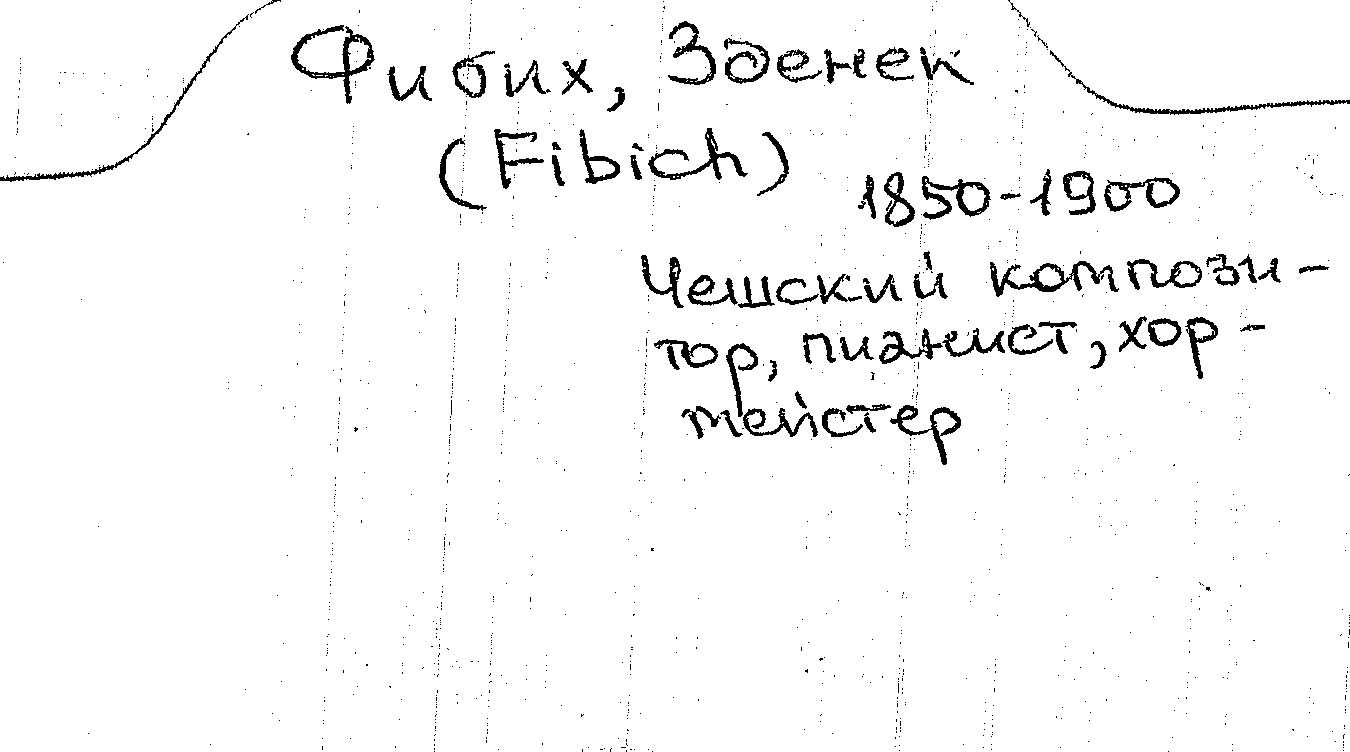 Фибих, Зденек
(Fibich)
1850-1900
Чешский компози-
тор, пианист, хор-
мейстер